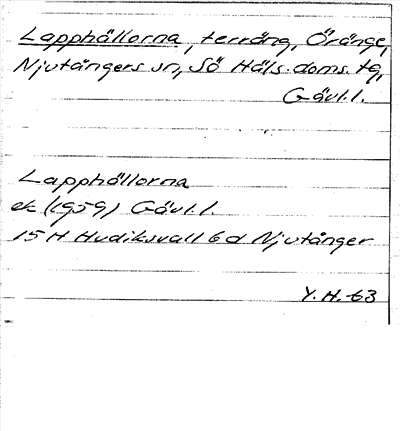 Lapphällorna, terräng, Öränge,
Njutångers sn, SÖ Häls. doms. tg,
Gävl.l.
Lapphällorna
ek (1959) Gävl.l.
15 H Hudiksvall 6 d Njutånger
Y.H.-63